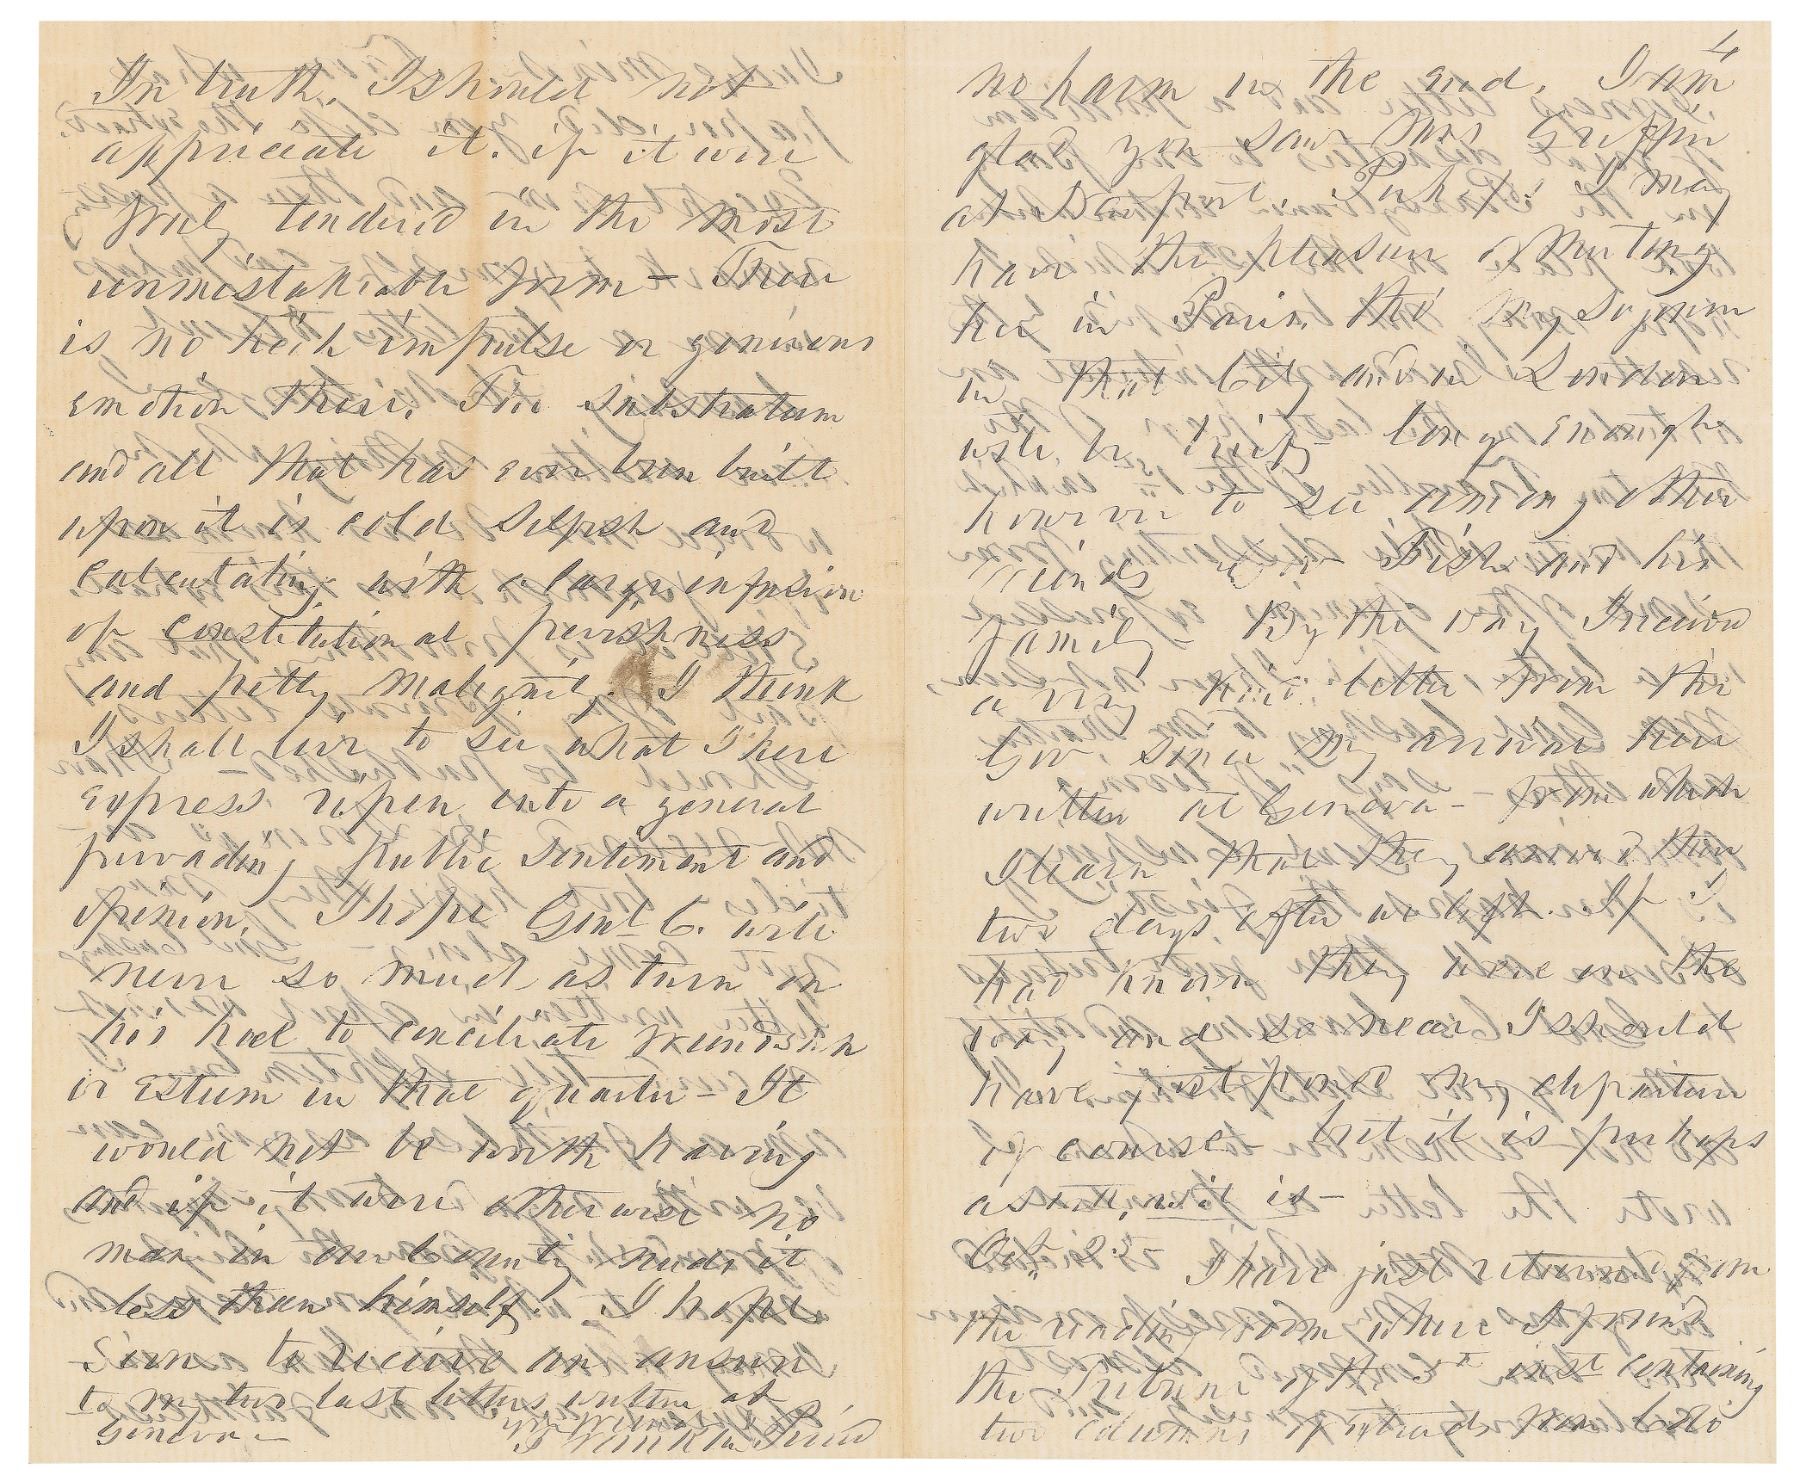 In truth, I should not
appreciate it. if it were
truly tendered in the most
unmistakeable form - There
is no rich impulse or generous
emotion there. The substratum
and all that has ever been built
upon it is cold selfish and
calculating with a large infusion
of constitutional peevishness
and petty malignity. I think
I shall live to see what I here
express, ripen into a general
pervading public sentiment and
opinion. I hope Genl C. will
never so much as turn on
his heel to conciliate friendship
or esteem in that quarter - It
would not be worth having
and if it were otherwise no
man in our County needs it
less than himself. I hope
soon to receive an answer
to my two last letters written at
Geneva -
4
no harm in the end. I am
glad you saw Mrs Griffin
at Newport. Perhaps I may
have the pleasure of meeting
her in Paris, tho' my sojourn
in that City and in London
will be brief, long enough
however to see among other
friends Gov Fish and his
family - By the way I received
a very kind letter from the
Gov since my arrival here
written at Geneva - from which
I learn that they arrived there
two days after we left. If I
had known they were on the
way and so near I should
have postponed my departure
of course - but it is perhaps
as well as it is -
Oct. 25 I have just returned from
the reading room where I found
the Tribune of the 5th inst containing
two columns of extracts from